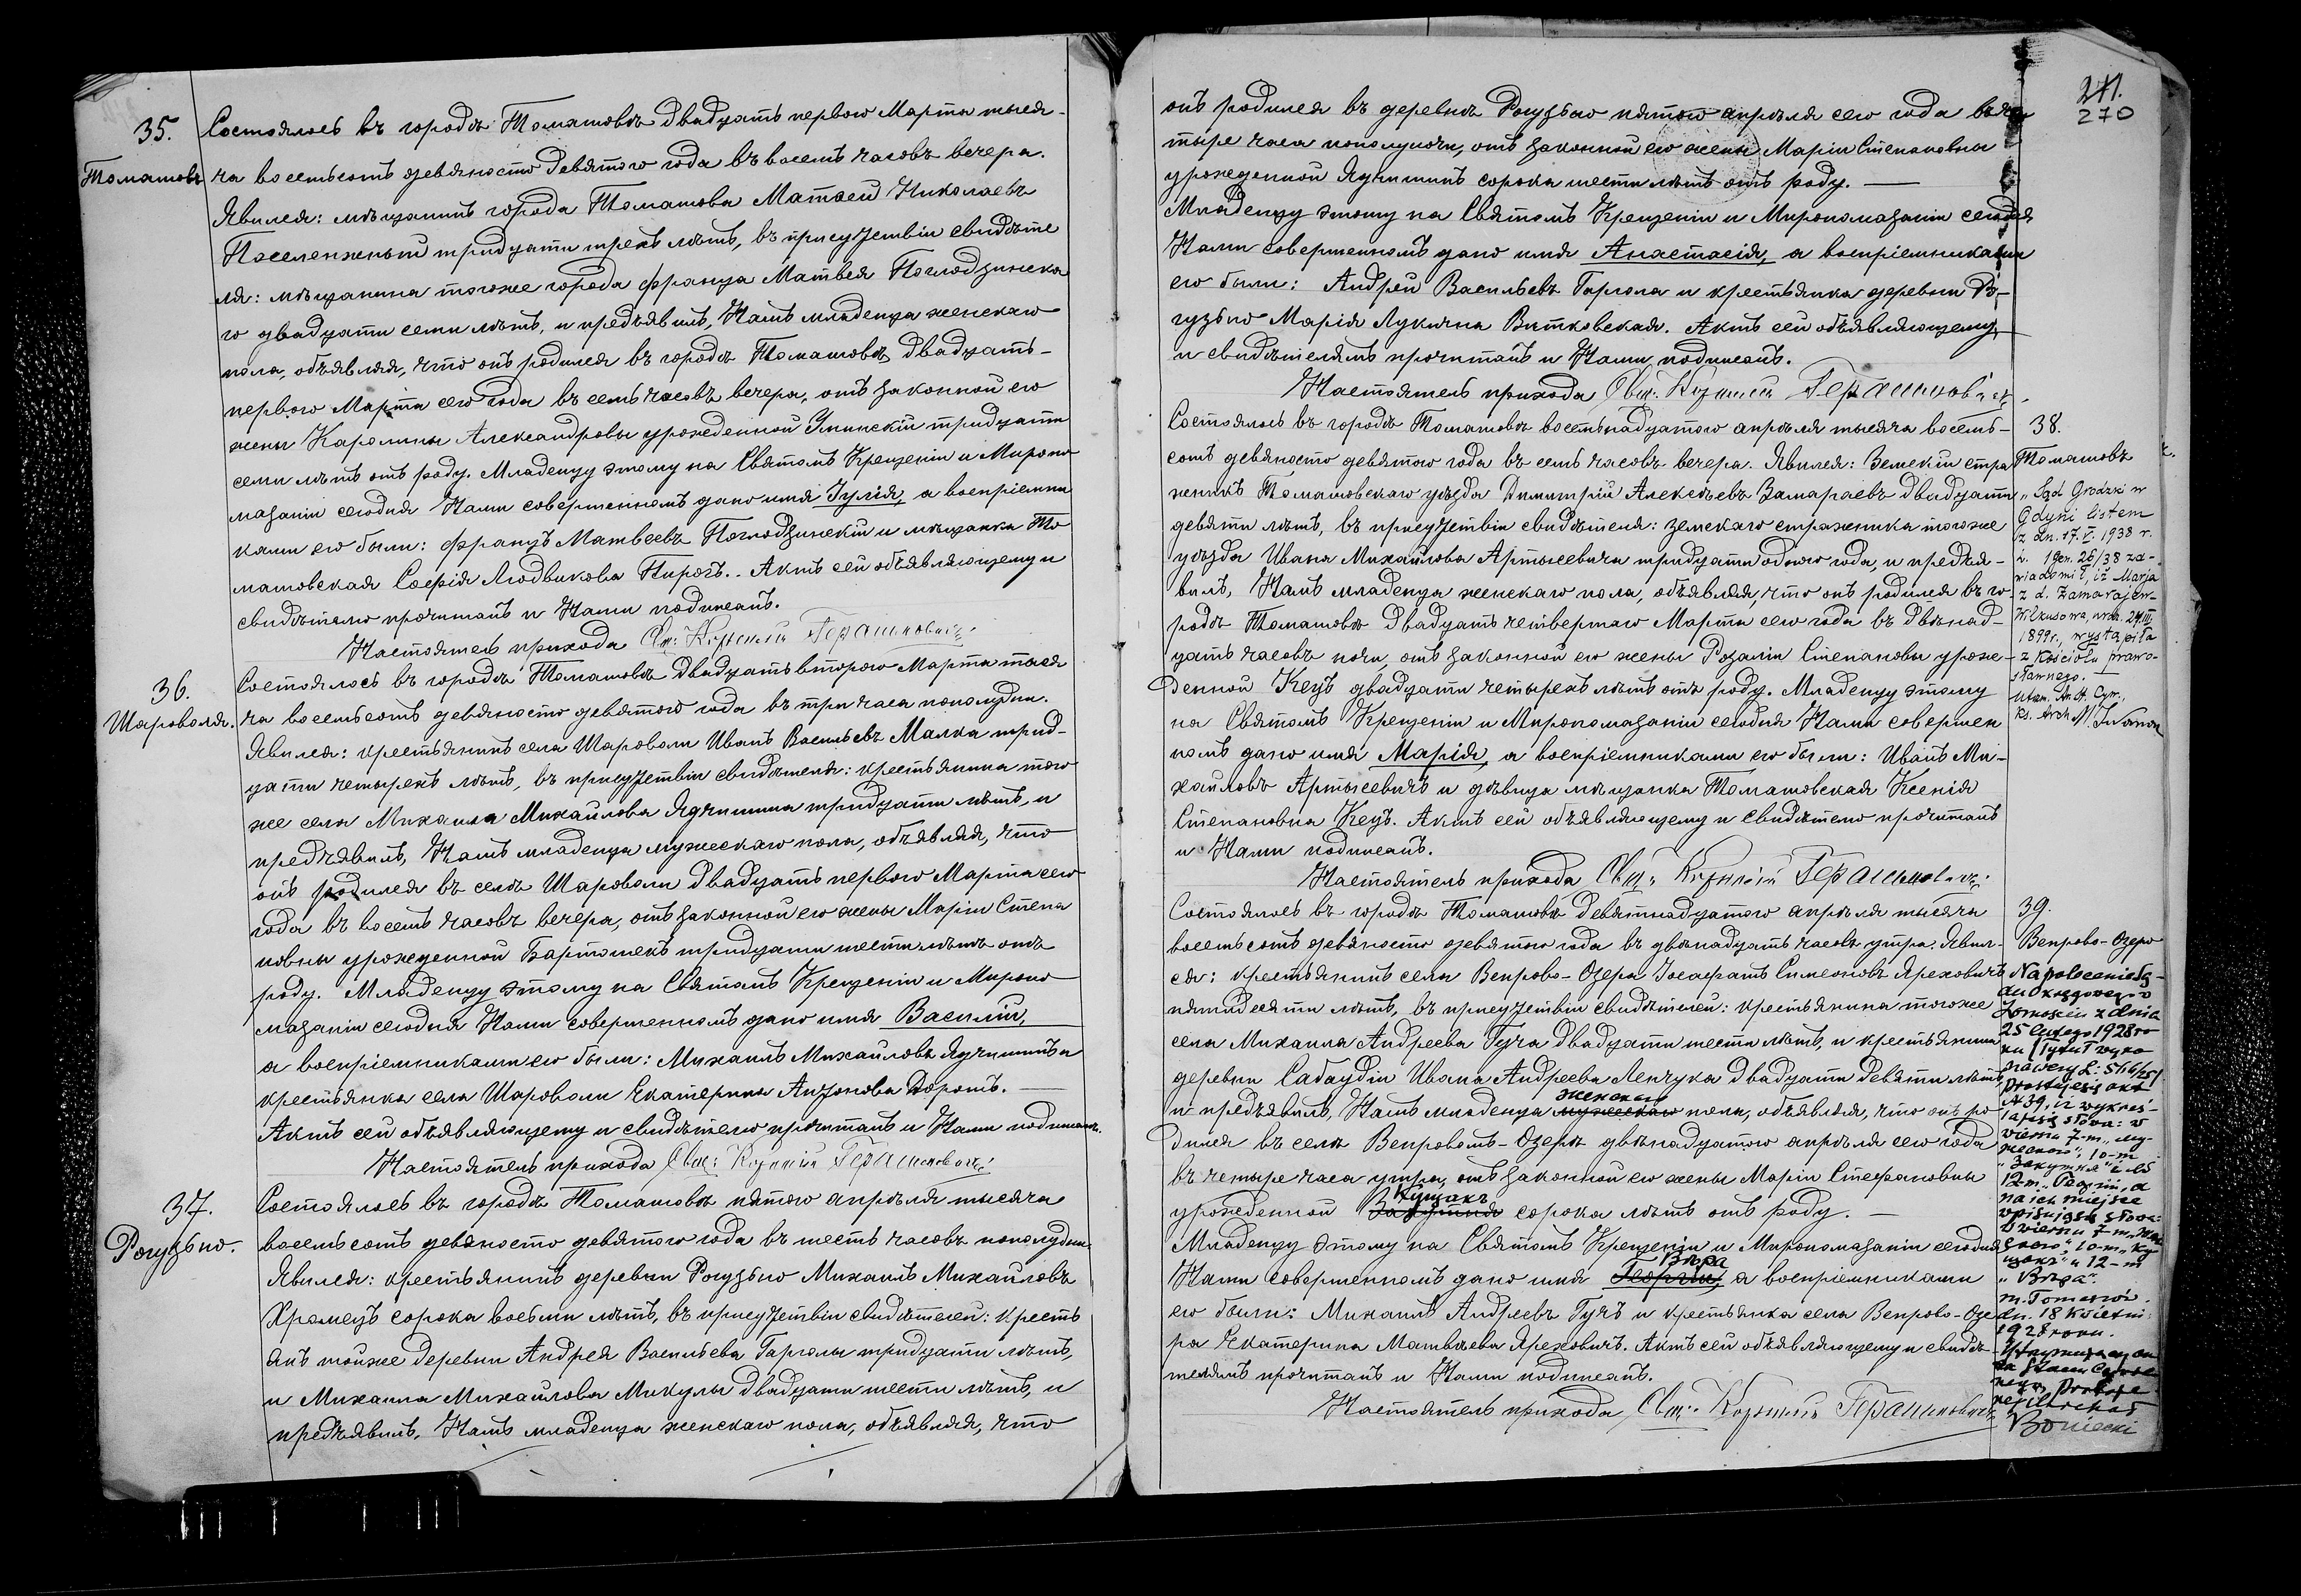 35.
Томашовъ
Состоялось въ городѣ Томашовѣ двадцать перваго Марта тыся-
ча восемьсотъ девяносто девятого года въ восемь часовъ вечера.
Явился: мѣщанинъ города Томашова Матвей Николаевъ
тридцати трехъ лѣтъ, въ присутствіи свидѣте
ля: мѣщанина тогоже города Франца Матвея Поглодзинска
го двадцати семи лѣтъ, и предъявилъ, Намъ младенца женскаго
пола, объявляя, что онъ родился въ городѣ Томашовѣ двадцать-
перваго Марта сего года въ семь часовъ вечера, отъ законной его
жены Каролины Александровы урожденной тридцати
семи лѣтъ отъ роду. Младенцу этому на Святомъ Крещеніи и Миропо
мазаніи сегодня Нами совершенномъ дано имя Іулія, а воспріемни
ками его были: Францъ Матвеевъ Поглодзинскій и мѣщанка То
машовская Софія Людвикова Пирогъ.. Актъ сей объявляющему и
свидѣтелю прочитанъ и Нами подписанъ.
Настоятель прихода Свщ: Корнилій Герасимовичъ
36.
Шароволя.
Состоялось въ городѣ Томашовѣ двадцать второго Марта тыся
ча восемьсотъ девяносто девятого года въ три часа пополудни.
Явился: крестьянинъ села Шароволи Иванъ Васильевъ Малка трид-
цати четырехъ лѣтъ, въ присутствіи свидѣтеля: крестьянина того
же села Михаила Михайлова Ядчишина тридцати лѣтъ, и
предъявилъ, Намъ младенца мужескаго пола, объявляя, что
онъ родился въ селѣ Шароволи двадцать перваго Марта сего
года въ восемь часовъ вечера, отъ законной его жены Маріи Степа
новны урожденной Бартошекъ тридцати шести лѣтъ отъ
роду. Младенцу этому на Святомъ Крещеніи и Миропо
мазаніи сегодня Нами совершенномъ дано имя Василій,
а воспріемниками его были: Михаилъ Михайловъ Ядчишинъ и
крестьянка села Шароволи Екатерина Антонова Доротъ. —
Актъ сей объявляющему и свидѣтелю прочитанъ и Нами подписанъ.
Настоятель прихода Свщ: Корнилій Герасимовичъ
37.
Рогузьно.
Состоялось въ городѣ Томашовѣ пятого апрѣля тысяча
восемьсотъ девяносто девятого года въ шесть часовъ пополудни.
Явился: крестьянинъ деревни Рогузьно Михаилъ Михайловъ
Хромецъ сорока восьми лѣтъ, въ присутствіи свидѣтелей: кресть
янъ тойже деревни Андрея Васильева Гарголы тридцати лѣтъ,
и Михаила Михайлова Микулы двадцати шести лѣтъ, и
предъявилъ, Намъ младенца женскаго пола, объявляя, что
271.
270
онъ родился въ деревнѣ Рогузьно пятого апрѣля сего года въ че
тыре часа пополуночи, отъ законной его жены Маріи Степановны
урожденной Ядчишинъ сорока шести лѣтъ отъ роду. —
Младенцу этому на Святомъ Крещеніи и Миропомазаніи сегодня
Нами совершенномъ дано имя Анастасія, а воспріемниками
его были: Андрей Васильевъ Гаргола и крестьянка деревни Ро-
гузьно Марія Лукична Витковская. Актъ сей объявляющему,
и свидѣтелямъ прочитанъ и Нами подписанъ.
Настоятель прихода Свщ: Корнилій Герасимовичъ.
Состоялось въ городѣ Томашовѣ восемьнадцатого апрѣля тысяча восемь-
сотъ девяносто девятого года въ семь часовъ вечера. Явился: Земскій стра
женикъ Томашовскаго уѣзда Димитрій Алексѣевъ Замараевъ двадцати
девяти лѣтъ, въ присутствіи свидѣтеля: земскаго стражника тогоже
уѣзда Ивана Михайлова Артысевича тридцати одного года, и предъя-
вилъ, Намъ младенца женскаго пола, объявляя, что онъ родился въ го
родѣ Томашовѣ двадцать четвертаго Марта сего года въ двѣнад-
цать часовъ ночи, отъ законной его жены Розаліи Степановы урож-
денной Кецъ двадцати четырехъ лѣтъ отъ роду. Младенцу этому
на Святомъ Крещеніи и Миропомазаніи сегодня Нами совершен
номъ дано имя Марія, а воспріемниками его были: Иванъ Ми-
хайловъ Артысевичъ и дѣвица мѣщанка Томашовская Ксенія
Степановна Кецъ. Актъ сей объявляющему и свидѣтелю прочитанъ
и Нами подписанъ.
Настоятель прихода Свщ: Корнилій Герасимовичъ
38.
Томашовъ
„Sąd Grodzki w
Gdyni listem
z dn. 17.V.1938 r.
L. 1gen.26/38 za-
wiadomił, iż Marja
z d. Zamarajew-
Wilkusowa, urodz. 24.III.
1899 r., wystąpiła
z Kościoła prawo-
sławnego. —
Utrzm. Akt. Cyw.,
Ks. Arch
Состоялось въ городѣ Томашовѣ девятнадцатого апрѣля тысяча
восемьсотъ девяносто девятого года въ двѣнадцать часовъ утра. Явил-
ся: крестьянинъ села Вепрово-Озера Іосафатъ Симеоновъ Яреховичъ
пятидесяти лѣтъ, въ присутствіи свидѣтелей: крестьянина тогоже
села Михаила Андреева Гуча двадцати шести лѣтъ, и крестьянина
деревни Сабаудіи Ивана Андреева Ленчука двадцати девяти лѣтъ,
женскаго
и предъявилъ, Намъ младенца мужескаго пола, объявляя, что онъ ро
дился въ селѣ Вепровомъ-Озерѣ двѣнадцатого апрѣля сего года
въ четыре часа утра, отъ законной его жены Маріи Стефановны
Куцакъ
урожденной сорока лѣтъ отъ роду. —
Младенцу этому на Святомъ Крещеніи и Миропомазаніи сегодня
Вѣра
Нами совершенномъ дано имя Георгій, а воспріемниками
его были: Михаилъ Андреевъ Гучъ и крестьянка села Вепрово-Озе
ра Екатерина Матвѣева Яреховичъ. Актъ сей объявляющему и свидѣ-
телямъ прочитанъ и Нами подписанъ.
Настоятель прихода Свщ: Корнилій Герасимовичъ
39.
Вепрово-Озеро
Na polecenie Są-
du Okręgowego w
Zamościu z dnia
25 lutego 1928 ro
ku (Tytuł wyko
nawczy L:
prostuje się akt
№ 39, iż wykreś-
la się słowa: w
wierszu 7-m „му-
жескаго“, 10-m
i w
12-m „Георгій“, a
na ich miejsce
wpisuje się słowa:
w wierszu 7-m „жен
скаго“, 10-m „Ку
цакъ“ i 12-m
„Вѣра“.
m. Tomaszów.
dn. 18 kwietnia
1928 roku.
Boniecki